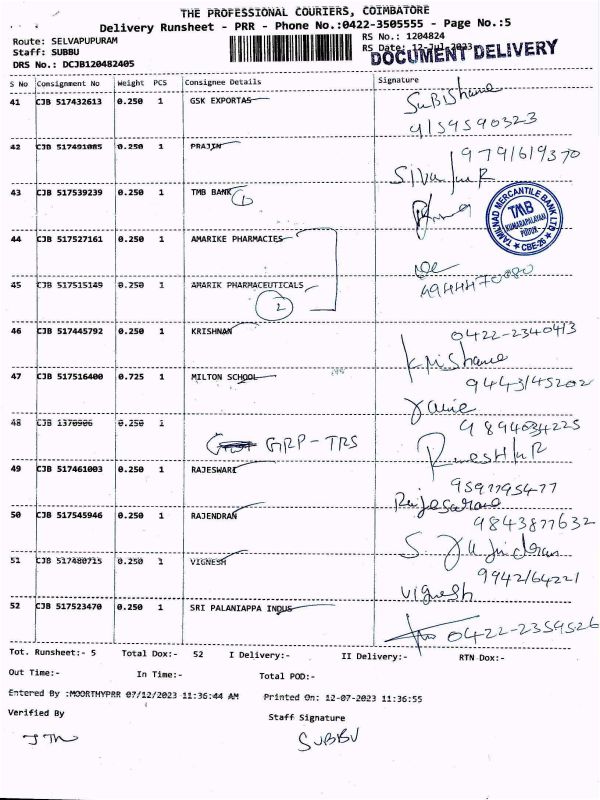 THE PROFESSIONAL COURIERS, COIMBATORE
Delivery Runsheet - PRR - Phone No.:0422-3505555 - Page No.:5
Route: SELVAPUPURAM
RS No.: 1204824
Staff: SUBBU
RS Date: 12-Jul-2023
DRS No.: DCJB120482405
DOCUMENT DELIVERY
S No Consignment No Weight PCS Consignee Details Signature
41 CJB 517432613 0.250 1 GSK EXPORTAS
9159590323
42 CJB 517491085 0.250 1 PRAJIN 9791619370
43 CJB 517539239 0.250 1 TMB BANK 1
TAMILNAD MERCANTILE BANK LTD
TMB
KUMARAPALAYAM
PUDUR
CBE-26
44 CJB 517527161 0.250 1 AMARIKE PHARMACIES
45 CJB 517515149 0.250 1 AMARIK PHARMACEUTICALS
2
46 CJB 517445792 0.250 1 KRISHNAN 0422-2340413
47 CJB 517516400 0.725 1 MILTON SCHOOL 9443145202
48 CJB 1370906 0.250 1 9894034225
GRP-TRS
49 CJB 517461003 0.250 1 RAJESWARI 9597795477
50 CJB 517545946 0.250 1 RAJENDRAN 9843877632
51 CJB 517480715 0.250 1 VIGNESH 9942164221
Vignesh
52 CJB 517523470 0.250 1 SRI PALANIAPPA INDUS 0422-2359526
Tot. Runsheet:- 5 Total Dox:- 52 I Delivery:- II Delivery:- RTN Dox:-
Out Time:- In Time:- Total POD:-
Entered By :MOORTHYPRR 07/12/2023 11:36:44 AM Printed On: 12-07-2023 11:36:55
Verified By Staff Signature
SUBBU